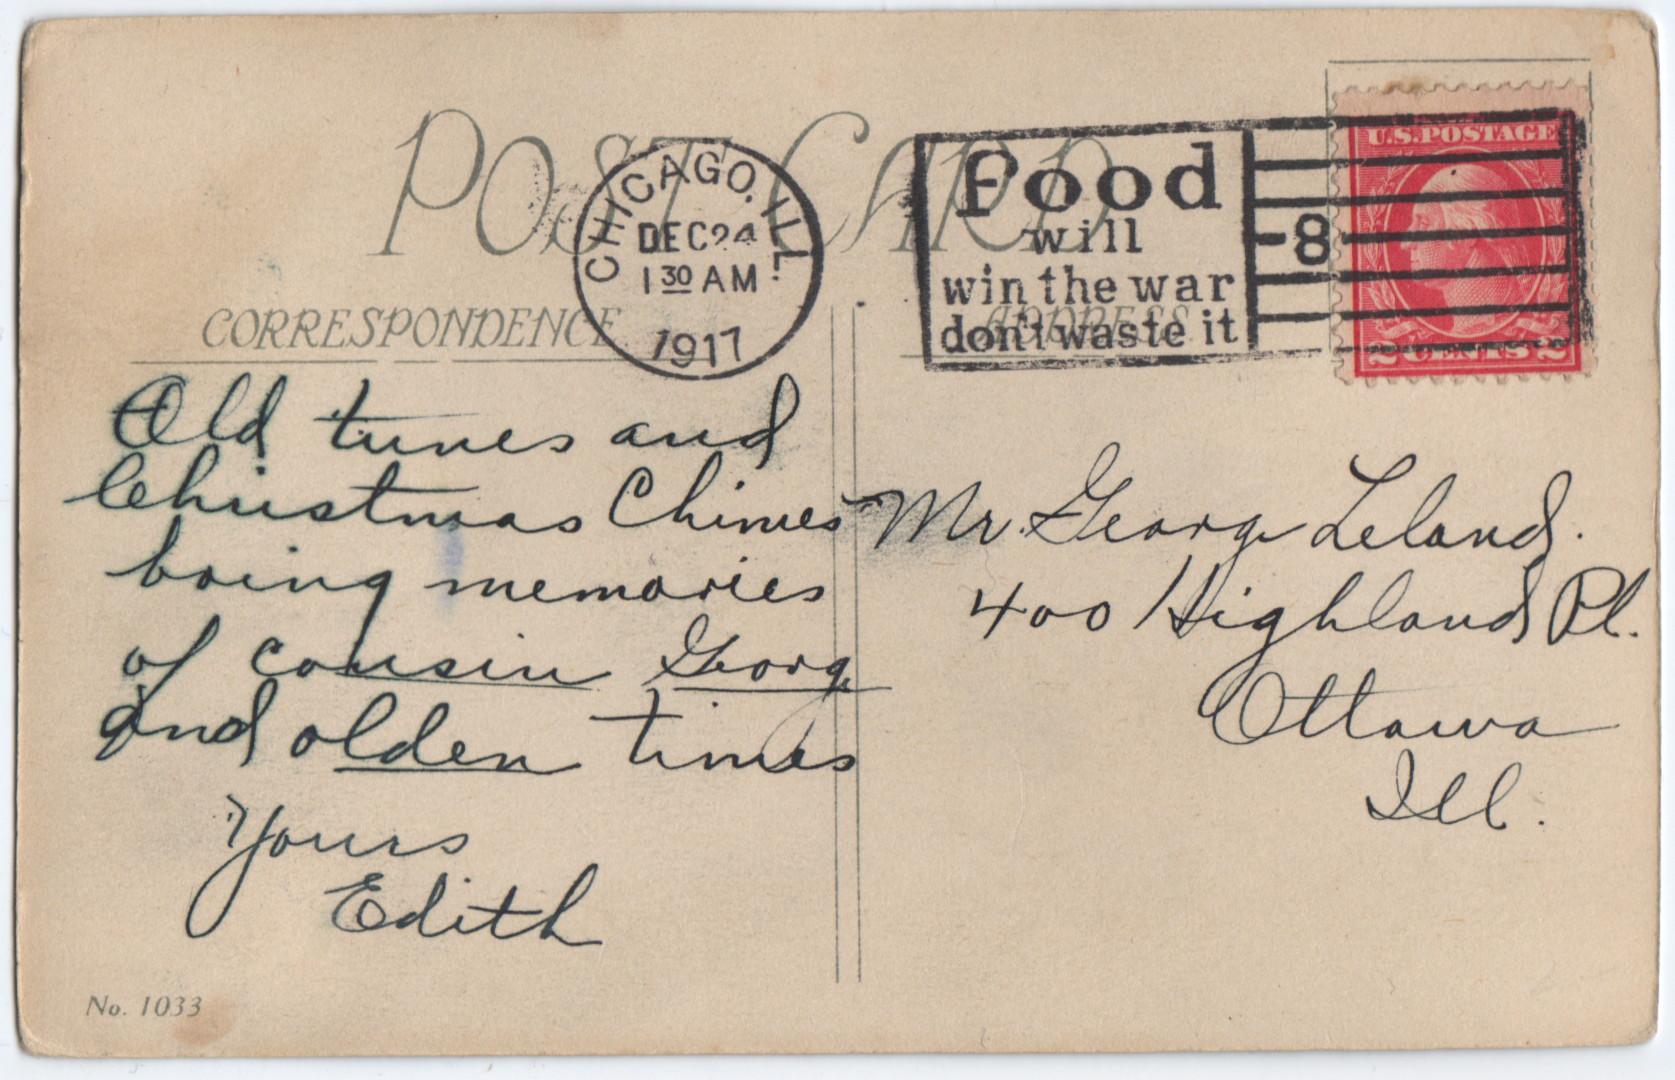 POST CARD
CHICAGO, ILL.
DEC 24
1 30 AM
1917
Food
will
win the war
don't waste it
8
U.S. POSTAGE
2 CENTS 2
CORRESPONDENCE
ADDRESS
Old tunes and
Christmas Chimes
bring memories
of cousin George
and olden times
Yours
Edith
Mr. George Leland.
400 Highland Pl.
Ottawa
Ill.
No. 1033